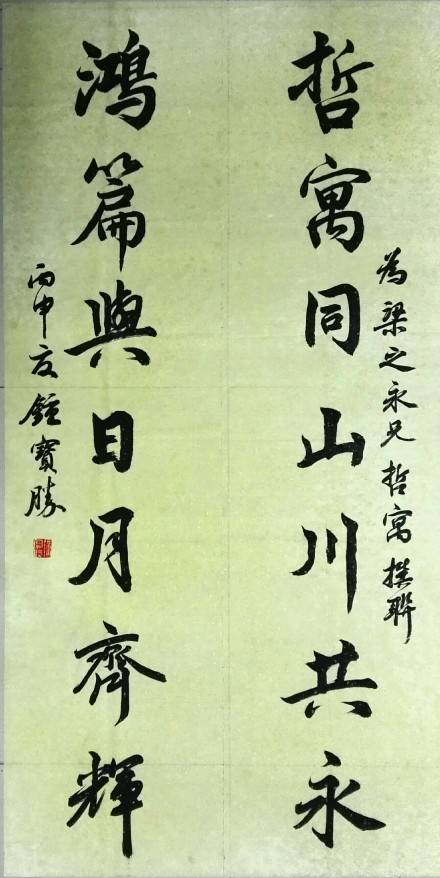 哲寓同山川共永
為梁之永兄哲寓撰聯
鴻篇與日月齊輝
丙申夏鍾寶勝